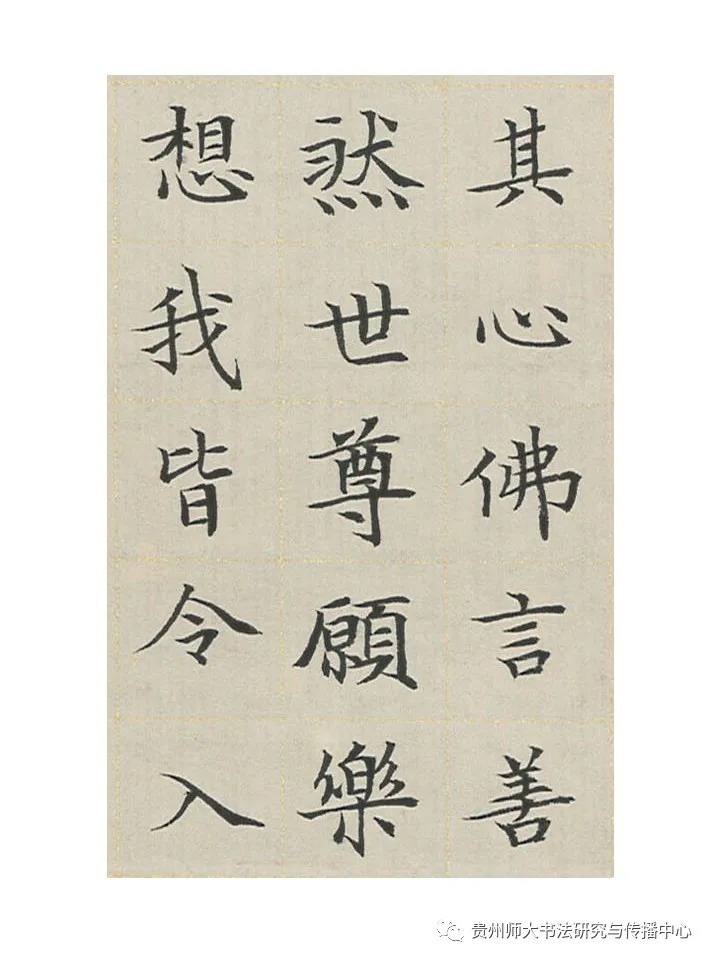 其心佛言善
然世尊願樂
想我皆令入
贵州师大书法研究与传播中心